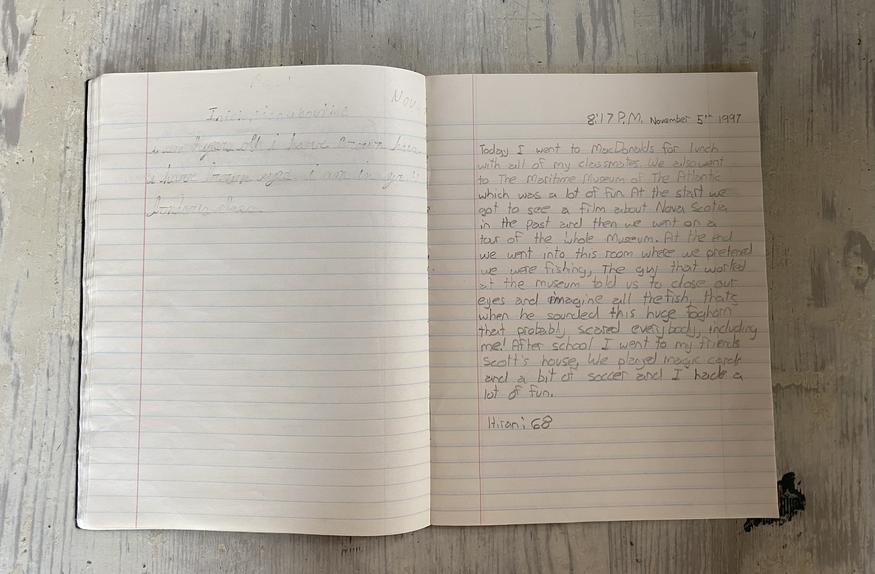 Nov.
old i have brown
i have brown eyes. i am in
8:17 P.M. November 5th 1997
Today I went to MacDonalds for lunch
with all of my classmates. We also went
to The Maritime Museum of The Atlantic
which was a lot of fun. At the start we
got to see a film about Nova Scotia
in the past and then we went on a
tour of the whole Museum. At the end
we went into this room where we pretened
we were fishing, The guy that worked
at the museum told us to close our
eyes and imagine all the fish, thats
when he sounded this huge foghorn
that probably scared everybody, including
me! After school I went to my friends
Scott's house, We played magic cards
and a bit of soccer and I had a
lot of fun.
68